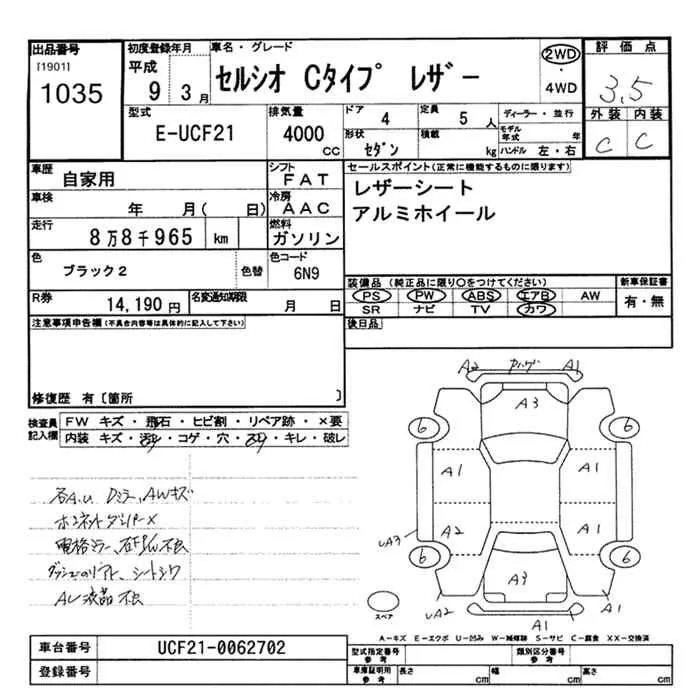 出品番号
[1901]
1035
初度登録年月
平成 9 3月
車名・グレード
セルシオ Cタイプ レザー
2WD
・
4WD
評価点
3,5
外装 内装
C C
型式
E-UCF21
排気量
4000 CC
ドア 4
定員 5 人
形状 セダン
積載 kg
ディーラー・並行
モデル年式 年
ハンドル 左・右
車歴 自家用
シフト FAT
車検 年 月( 日)
冷房 AAC
走行 8万8千965 km
燃料 ガソリン
色 ブラック2
色替
色コード 6N9
R券 14,190 円
名変通知期限 月 日
セールスポイント(正常に機能するものに限ります)
レザーシート
アルミホイール
装備品(純正品に限り○をつけてください)
PS PW ABS エアB AW
SR ナビ TV カワ
新車保証書
有・無
後日品
注意事項申告欄(不具合内容等は具体的に記入して下さい)
修復歴 有〔箇所 〕
検査員記入欄
FW キズ・飛石・ヒビ割・リペア跡・×要
内装 キズ・汚れ・コゲ・穴・スレ・キレ・破レ
各A.U Dミラー、AWキズ
ボンネットダンパー×
電格ミラー、不良
シートシワ
AC液晶不良
A2 A1
A3
6 6
A1 A1
A2 A1
uA3
6 6
A3
uA2 A1
A1
スペア
A-キズ E-エクボ U-凹み W-補修跡 S-サビ C-腐食 XX-交換済
車台番号 UCF21-0062702
登録番号
型式指定番号 参考
類別区分番号 参考
車庫証明用 参考
長さ cm
幅 cm
高さ cm